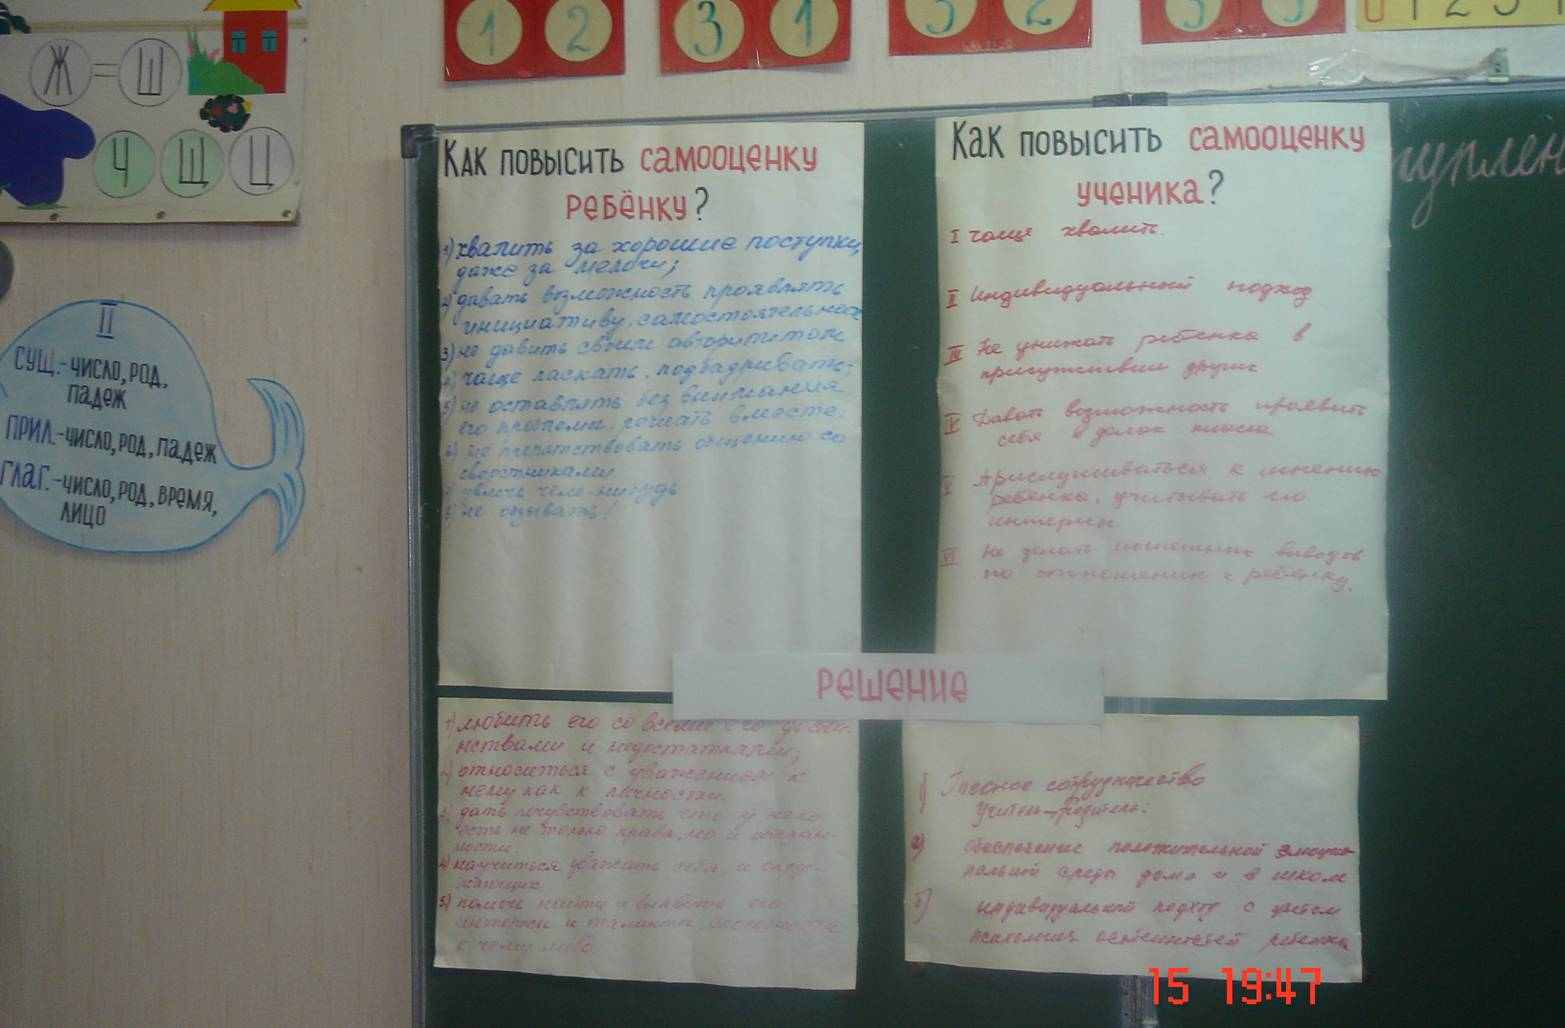 Ж = Ш
Ч Щ Ц
1 2
3 1
3 2
3 3
1 2 3 4
II
СУЩ.-ЧИСЛО, РОД,
ПАДЕЖ
ПРИЛ.-ЧИСЛО, РОД, ПАДЕЖ
ГЛАГ.-ЧИСЛО, РОД, ВРЕМЯ,
ЛИЦО
КАК ПОВЫСИТЬ САМООЦЕНКУ
РЕБЁНКУ?
1) хвалить за хорошие поступки,
даже за мелочи;
2) давать возможность проявлять
инициативу, самостоятельность
3) не давить своим авторитетом
4) чаще ласкать, подбадривать;
5) не оставлять без внимания
его проблемы, решать вместе;
6) не препятствовать общению со
сверстниками
увлечь чем-нибудь
не обзывать!
КАК ПОВЫСИТЬ САМООЦЕНКУ
УЧЕНИКА?
I чаще хвалить.
II Индивидуальный подход
III Не унижать ребенка в
присутствии других
IV Давать возможность проявить
себя в делах класса
V Прислушиваться к мнению
ребенка, учитывать его
интересы
VI Не делать поспешных выводов
по отношению к ребёнку.
уплен
РЕШЕНИЕ
1) любить его со всеми его досто-
нствами и недостатками;
2) относиться с уважением к
нему как к личности
3) дать почувствовать что у него
есть не только права, но и обязан-
ности
4) научиться уважать себя и окру-
жающих
5) помочь найти и выявить его
интересы и таланты
к чему либо.
1) Тесное сотрудничество
Учитель-Родитель:
а) обеспечение положительной эмоцио-
нальной среды дома и в школе
б) индивидуальный подход с учетом
психологич. особенностей ребенка
15 19:47